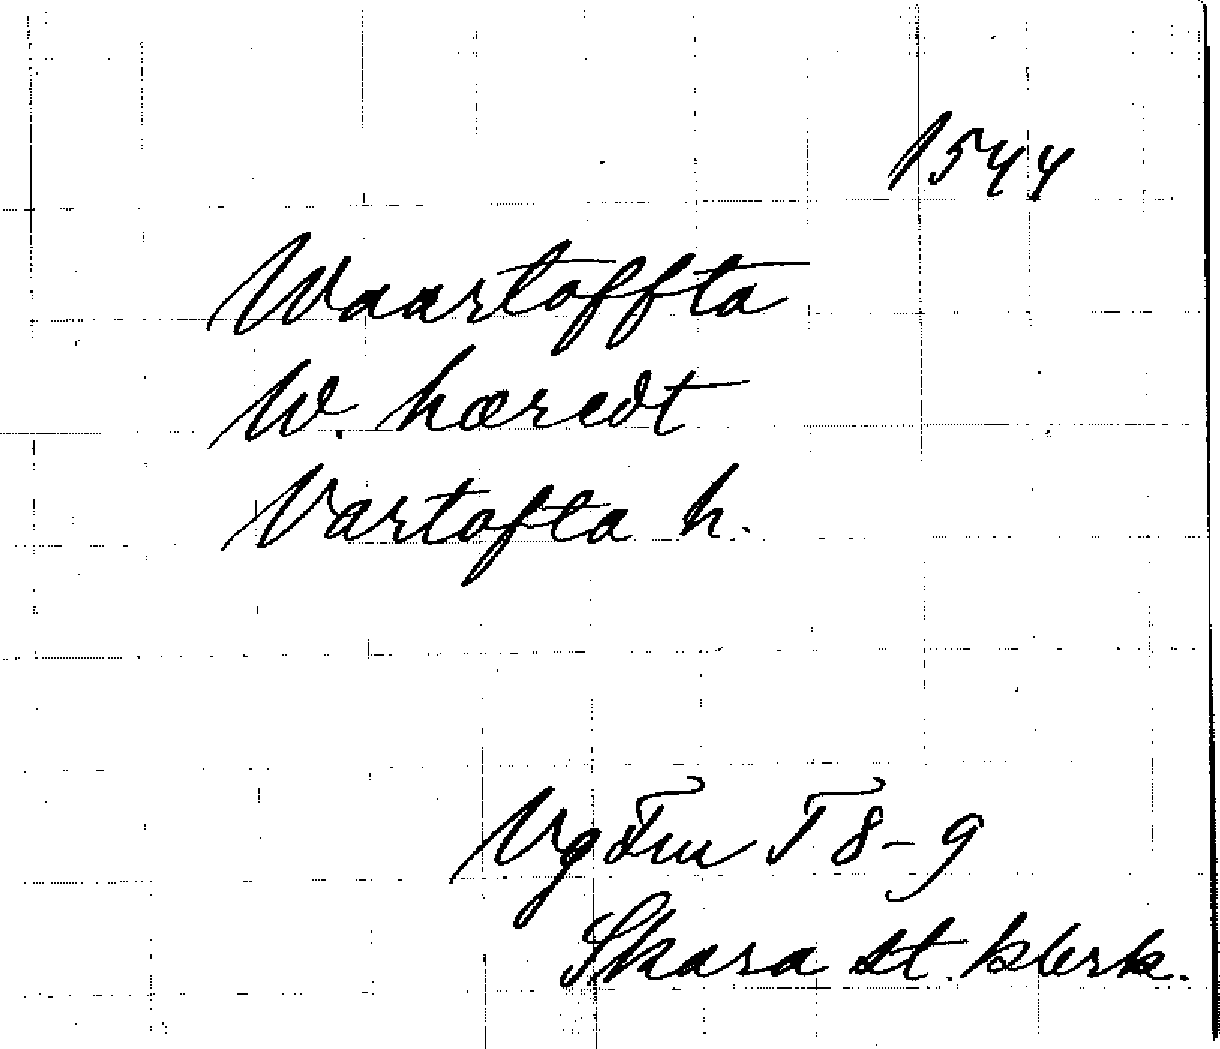 1544
Waartoffta
W. hæredt
Vartofta h.
Vg Fru T 8-9
Skara st. klerk.